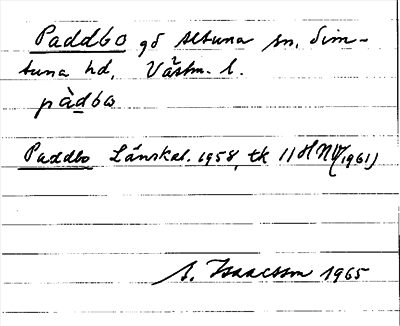 Paddbo gd Altuna sn, Sim-
tuna hd, Västm. l.
pàdbω
Paddbo Länskal. 1958, tk 11 H NV (1961)
A. Isaacsson 1965